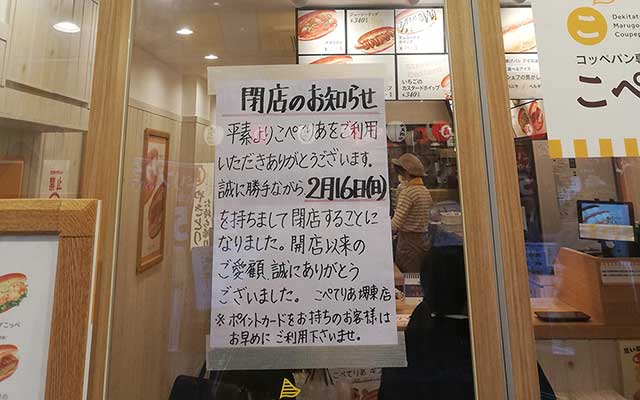 閉店のお知らせ
平素よりこぺてりあをご利用
いただきありがとうございます。
誠に勝手ながら2月16日(日)
を持ちまして閉店することに
なりました。開店以来の
ご愛顧、誠にありがとう
ございました。 こぺてりあ堺東店
※ポイントカードをお持ちのお客様は
お早めにご利用下さいませ。
いちごの
カスタードホイップ
¥340
Dekitat
Marugo
Coupep
コッペパン専
こぺ
こ